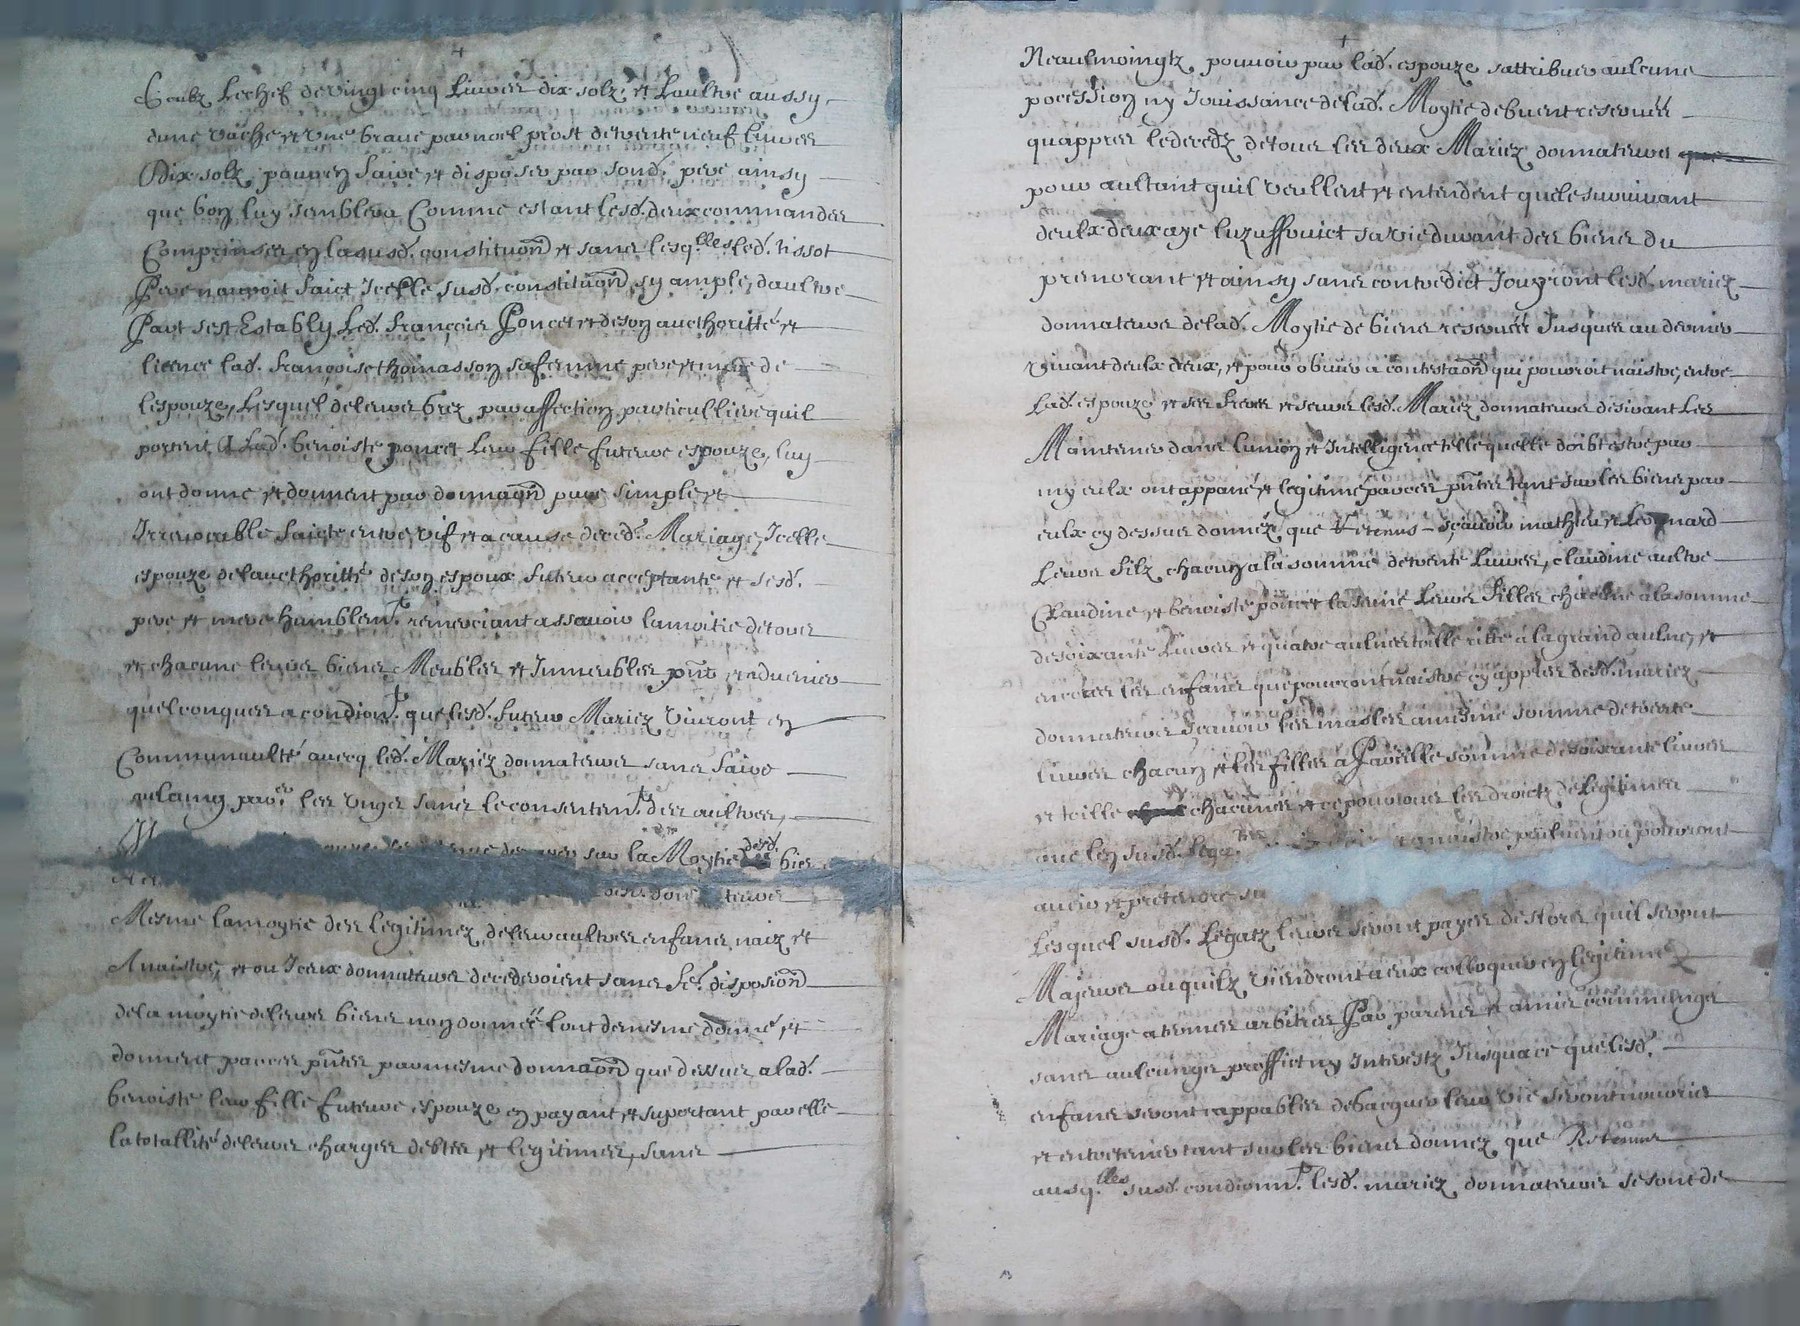 soubz Lechef de vingt cinq Livres dix solz, et Laultre aussy
dune vache et une brave par noel prost de trente neuf livres
Dix solz pour en faire et disposer par sond. pere ainsy
que bon luy semblera Comme estant lesd. deux commandes
Comprinses en lasusd. constituon et sans lesqlles led. tissot
Pere nauroit faict Jcelle susd. constituon sy ample, daultre
Part sest Estably Led. françois Poncet et de son aucthoritté et
licence lad. françoise thomasson sa femme pere et mere de
lespouze, Lesquel de leurs grez par affection particulliere quil
portent A Lad. benoiste poncet Leur fille future espouze, luy
ont donne et donnent par donnaon pure simple et
Jrrevocable faicte entre vif et a cause de ced. Mariage, Jcelle
espouze de laucthoritté de son espoux futur acceptante et sesd.
pere et mere humblemt. remerciant assavoir la moitie de tous
et chacune leurs biens Meubles et Jmmeubles pnts et advenir
quelconques a condion. que lesd. futur Mariez vivront en
Communaulté avecq lesd. Mariez donnateurs sans faire
les ungs sans le consentemt. des aultres,
sur la Moytie desd. bien
Mesme la moytie des legitimez de leur aultres enfans naiz et
A naistre, et ou Jceux donnateurs decederoient sans fe. disposion
de la moytie de leurs biens non donnéé lont de mesme donné et
donnent par ces pntes par mesme donnaon que dessus a lad.
benoiste leur fille future espouze en payant et suportant par elle
la totallité de leurs charges debtes et legitimes, sans
Neaulmoingtz pouvoir par lad. espouze sattribuer aulcune
pocession ny Jouissance de lad. Moytie de biens reservéé
quappres le decedz de tous les deux Mariez donnateurs
pour aultant quil veullent et entendent que le survivant
deulx deux aye luzuffruict sa vie durant des biens du
premorant et ainsy sans contredict Jouyront lesd. mariez
donnateurs de lad. Moytie de biens reservéé Jusques au dernier
vivant deulx deux, et pour obvier a contestaon qui pourroit naistre, entre
Lad. espouze et ses freres et seurs lesd. Mariez donnateurs desirant Les
Maintenir dans lunion et Jntelligence telle quelle doibt estre par
my eulx ont appané et legitimé par ces pntes tant sur les biens par
eulx cy dessus donnéz que Retenus - sçavoir mathieu et Leonnard
Leurs filz chacun a la somme de trente Livres, claudine aultre
Claudine et benoiste poncet la jeune Leurs filles chacune a la somme
de soixante Livres et quatre aulnes toille ritte a la grand aulne, et
encores les enfans que pourront naistre cy appres desd. mariez
donnateurs sçavoir les masles a mesme somme de trente
livres chacun et les filles a Pareille somme de soixante livres
et toille chacunes et ce pour tous les droictz de legitimes
que les susd.
avoir et pretendre su
Lesquel susd. Legatz leurs seront payes des lors quil seront
Majeurs ou quilz viendront a eux colloquer en legitime
Mariage a termes arbitres Par parens et amis communge
sans aulcunge proffict ny Jnterestz Jusqua ce que lesd.
enfans seront cappables de gagner leur vie seront nourris
et entretenir tant sur les biens donnez que Retenus
ausqlles susd. condionn. lesd. mariez donnateurs se sont de